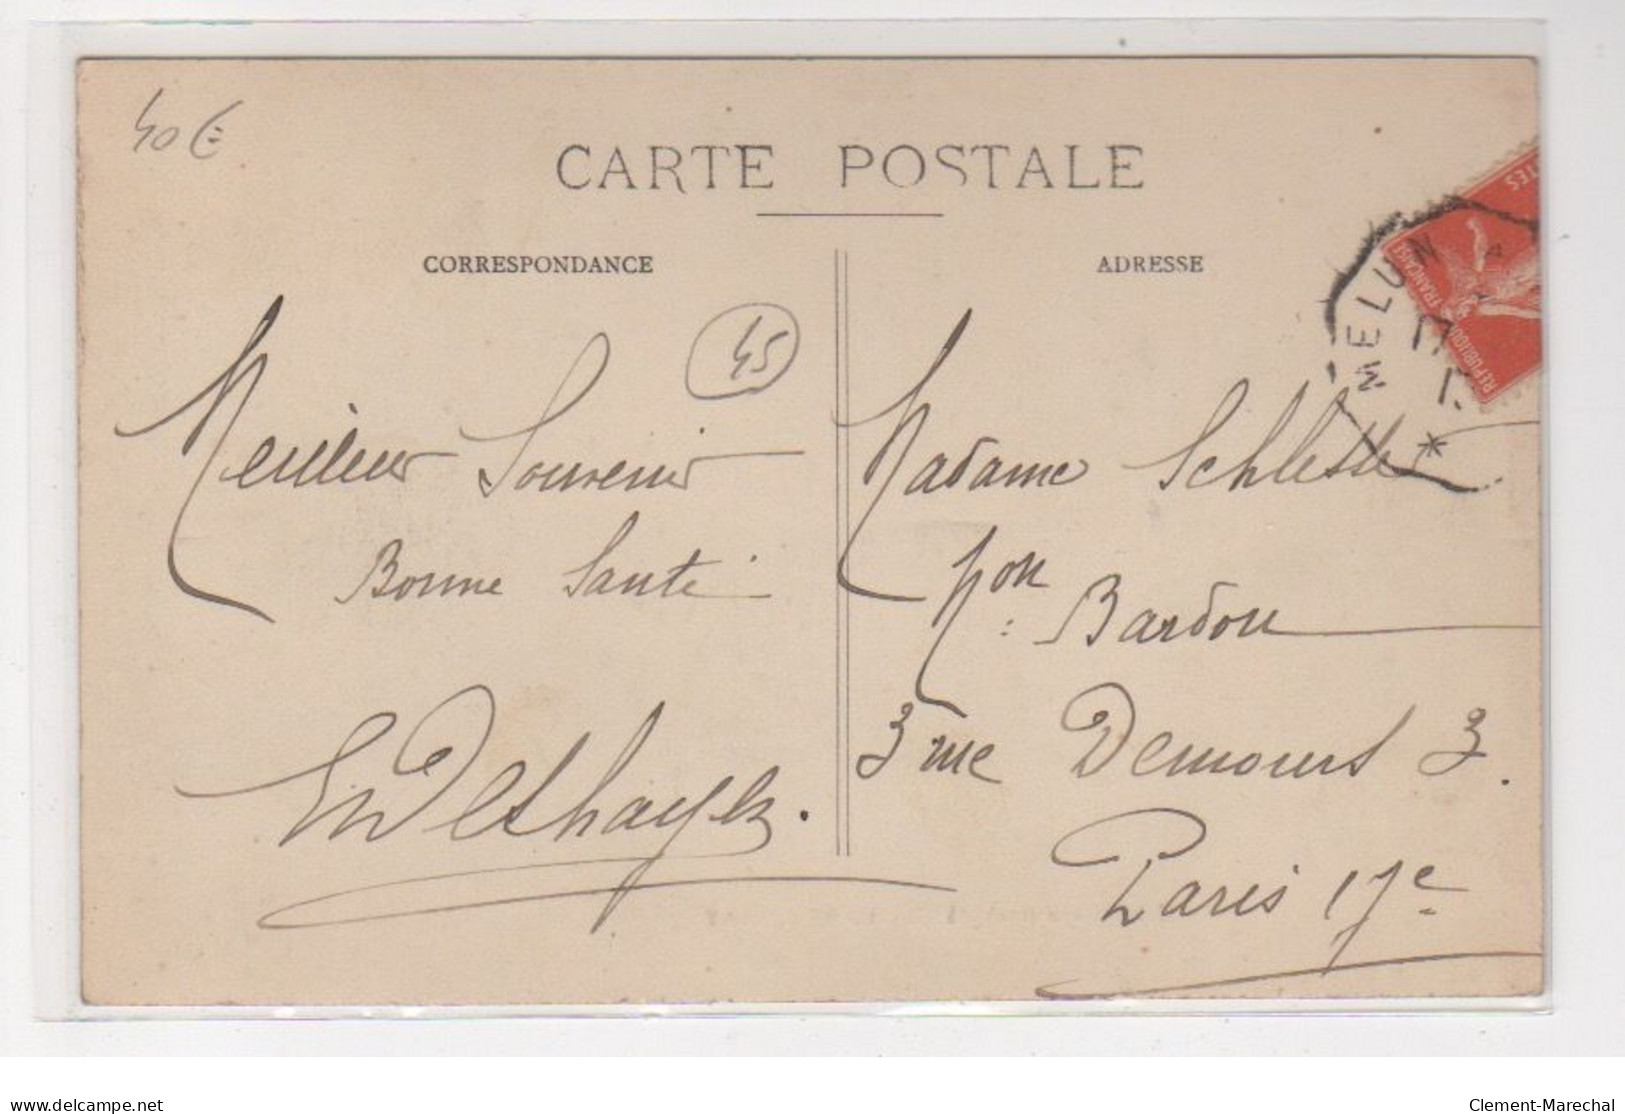 40 €
CARTE POSTALE
CORRESPONDANCE
ADRESSE
45
Meilleur Souvenir
Bonne Santé
Deshayes
Madame Schlesser
Mon Bardou
3 rue Demours 3.
Paris 17e
MELUN
REPUBLIQUE FRANÇAISE
TES
delcampe.net
Clement-Marechal